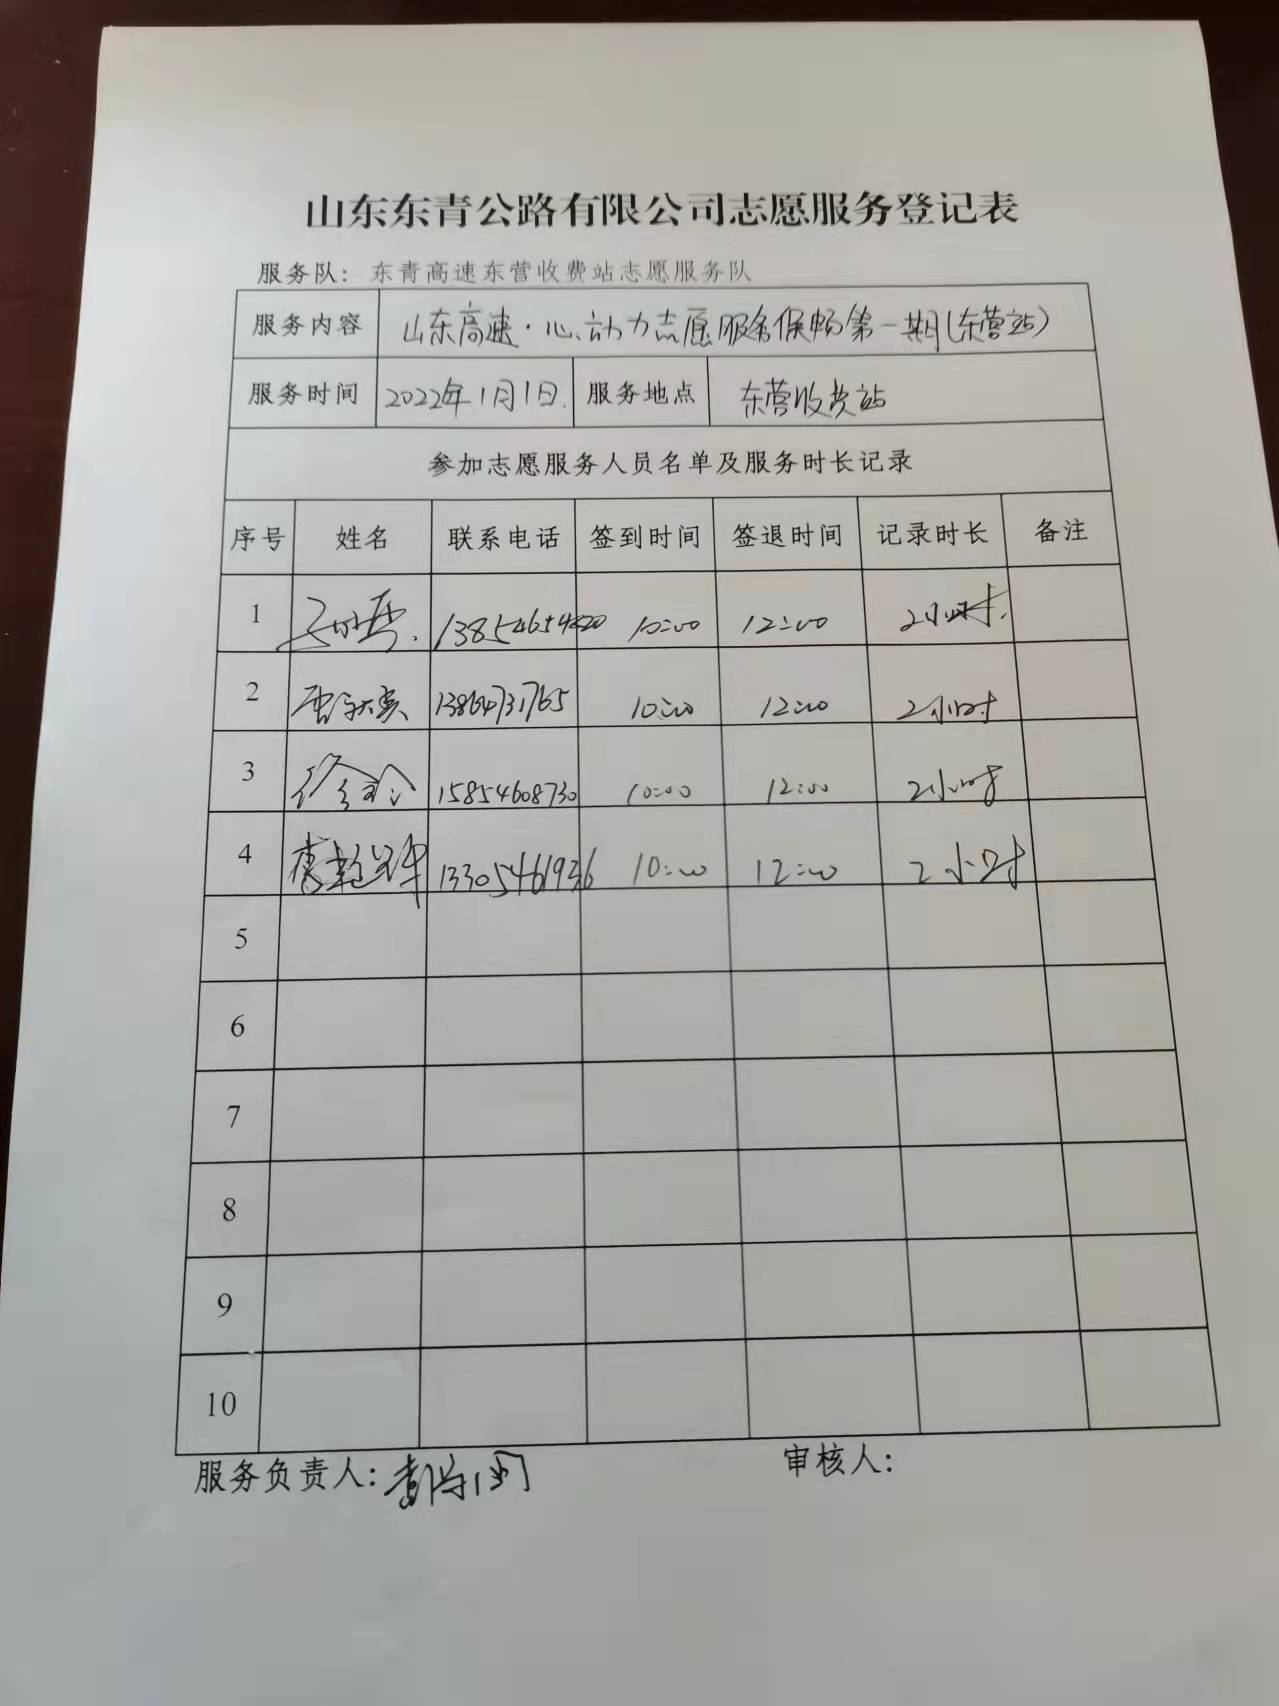 山东东青公路有限公司志愿服务登记表
服务队：东青高速东营收费站志愿服务队
服务内容 山东高速·心动力志愿服务保畅第一期(东营站)
服务时间 2022年1月1日. 服务地点 东营收费站
参加志愿服务人员名单及服务时长记录
序号 姓名 联系电话 签到时间 签退时间 记录时长 备注
1 10:00 12:00 2小时.
2 13864731765 10:00 12:00 2小时
3 15854608730 10:00 12:00 2小时
4 13305461936 10:00 12:00 2小时
5
6
7
8
9
10
服务负责人: 审核人: